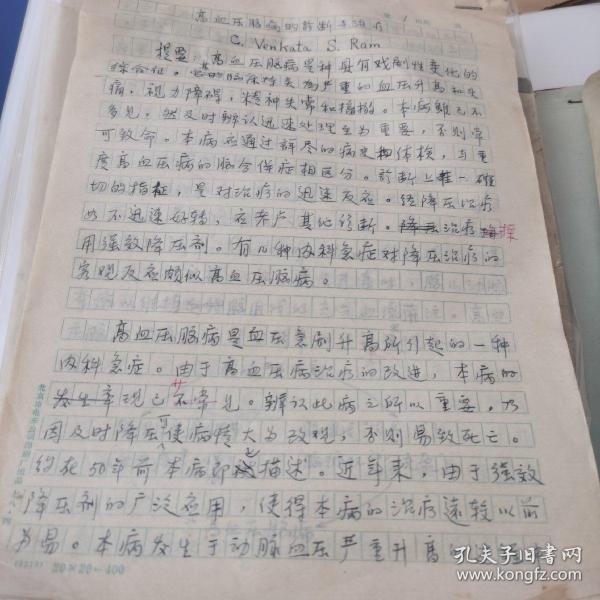 高血压脑病的诊断与治疗
C. Venkata S. Ram
提要：高血压脑病是种具有戏剧性变化的
综合征。其临床特点为严重的血压升高和头
痛，视力障碍，精神失常和搐搦。本病虽已不
多见，然及时辨认迅速处理至为重要，否则常
可致命。本病应通过详尽的病史和体检，与重
度高血压病的脑合併症相区分。诊断上唯一确
切的指征，是对治疗的迅速反应。经降压治疗
如不迅速好转，应考虑其他诊断。治疗採
用强效降压剂。有几种内科急症对降压治疗的
客观反应颇似高血压脑病。
高血压脑病是血压急剧升高所引起的一种
内科急症。由于高血压病治疗的改进，本病的
发生率现已少见。辨认此病之所以重要，乃
因及时降压可使病情大为改观，否则易致死亡。
约在50年前本病即被描述。近年来，由于强效
降压剂的广泛应用，使得本病的治疗远较以前
为易。本病发生于动脉血压严重升高
20×20=400
孔夫子旧书网
www.kongfz.com